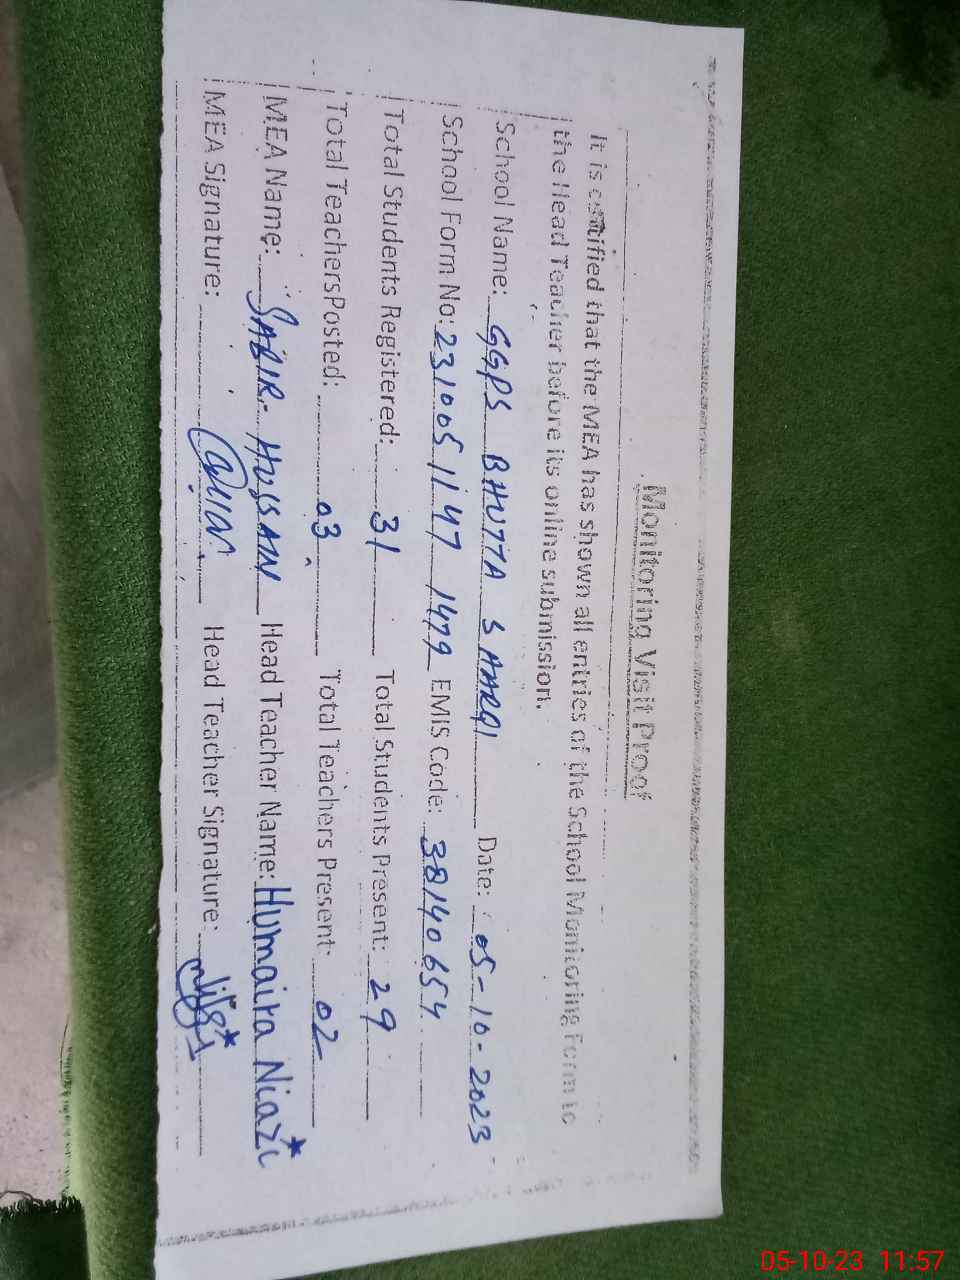 Monitoring Visit Proof
It is certified that the MEA has shown all entries of the School Monitoring Form to
the Head Teacher before its online submission.
School Name: GGPS BHUTTA SHARQI Date: 05-10-2023
School Form No: 2310051147 1479 EMIS Code: 38140654
Total Students Registered: 31 Total Students Present: 29
Total TeachersPosted: 03 Total Teachers Present: 02
MEA Name: SABIR HUSSAIN Head Teacher Name: Humaira Niazi
MEA Signature: Head Teacher Signature:
05-10-23 11:57